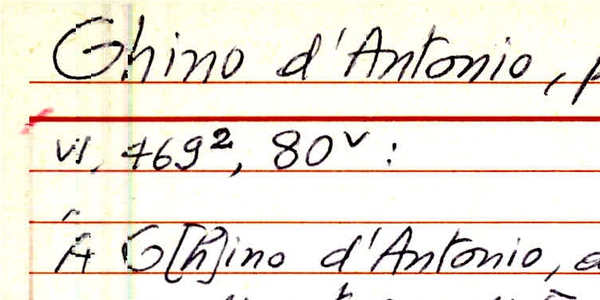 Ghino d'Antonio, p
VI, 469², 80ᵛ :
A G[h]ino d'Antonio, d